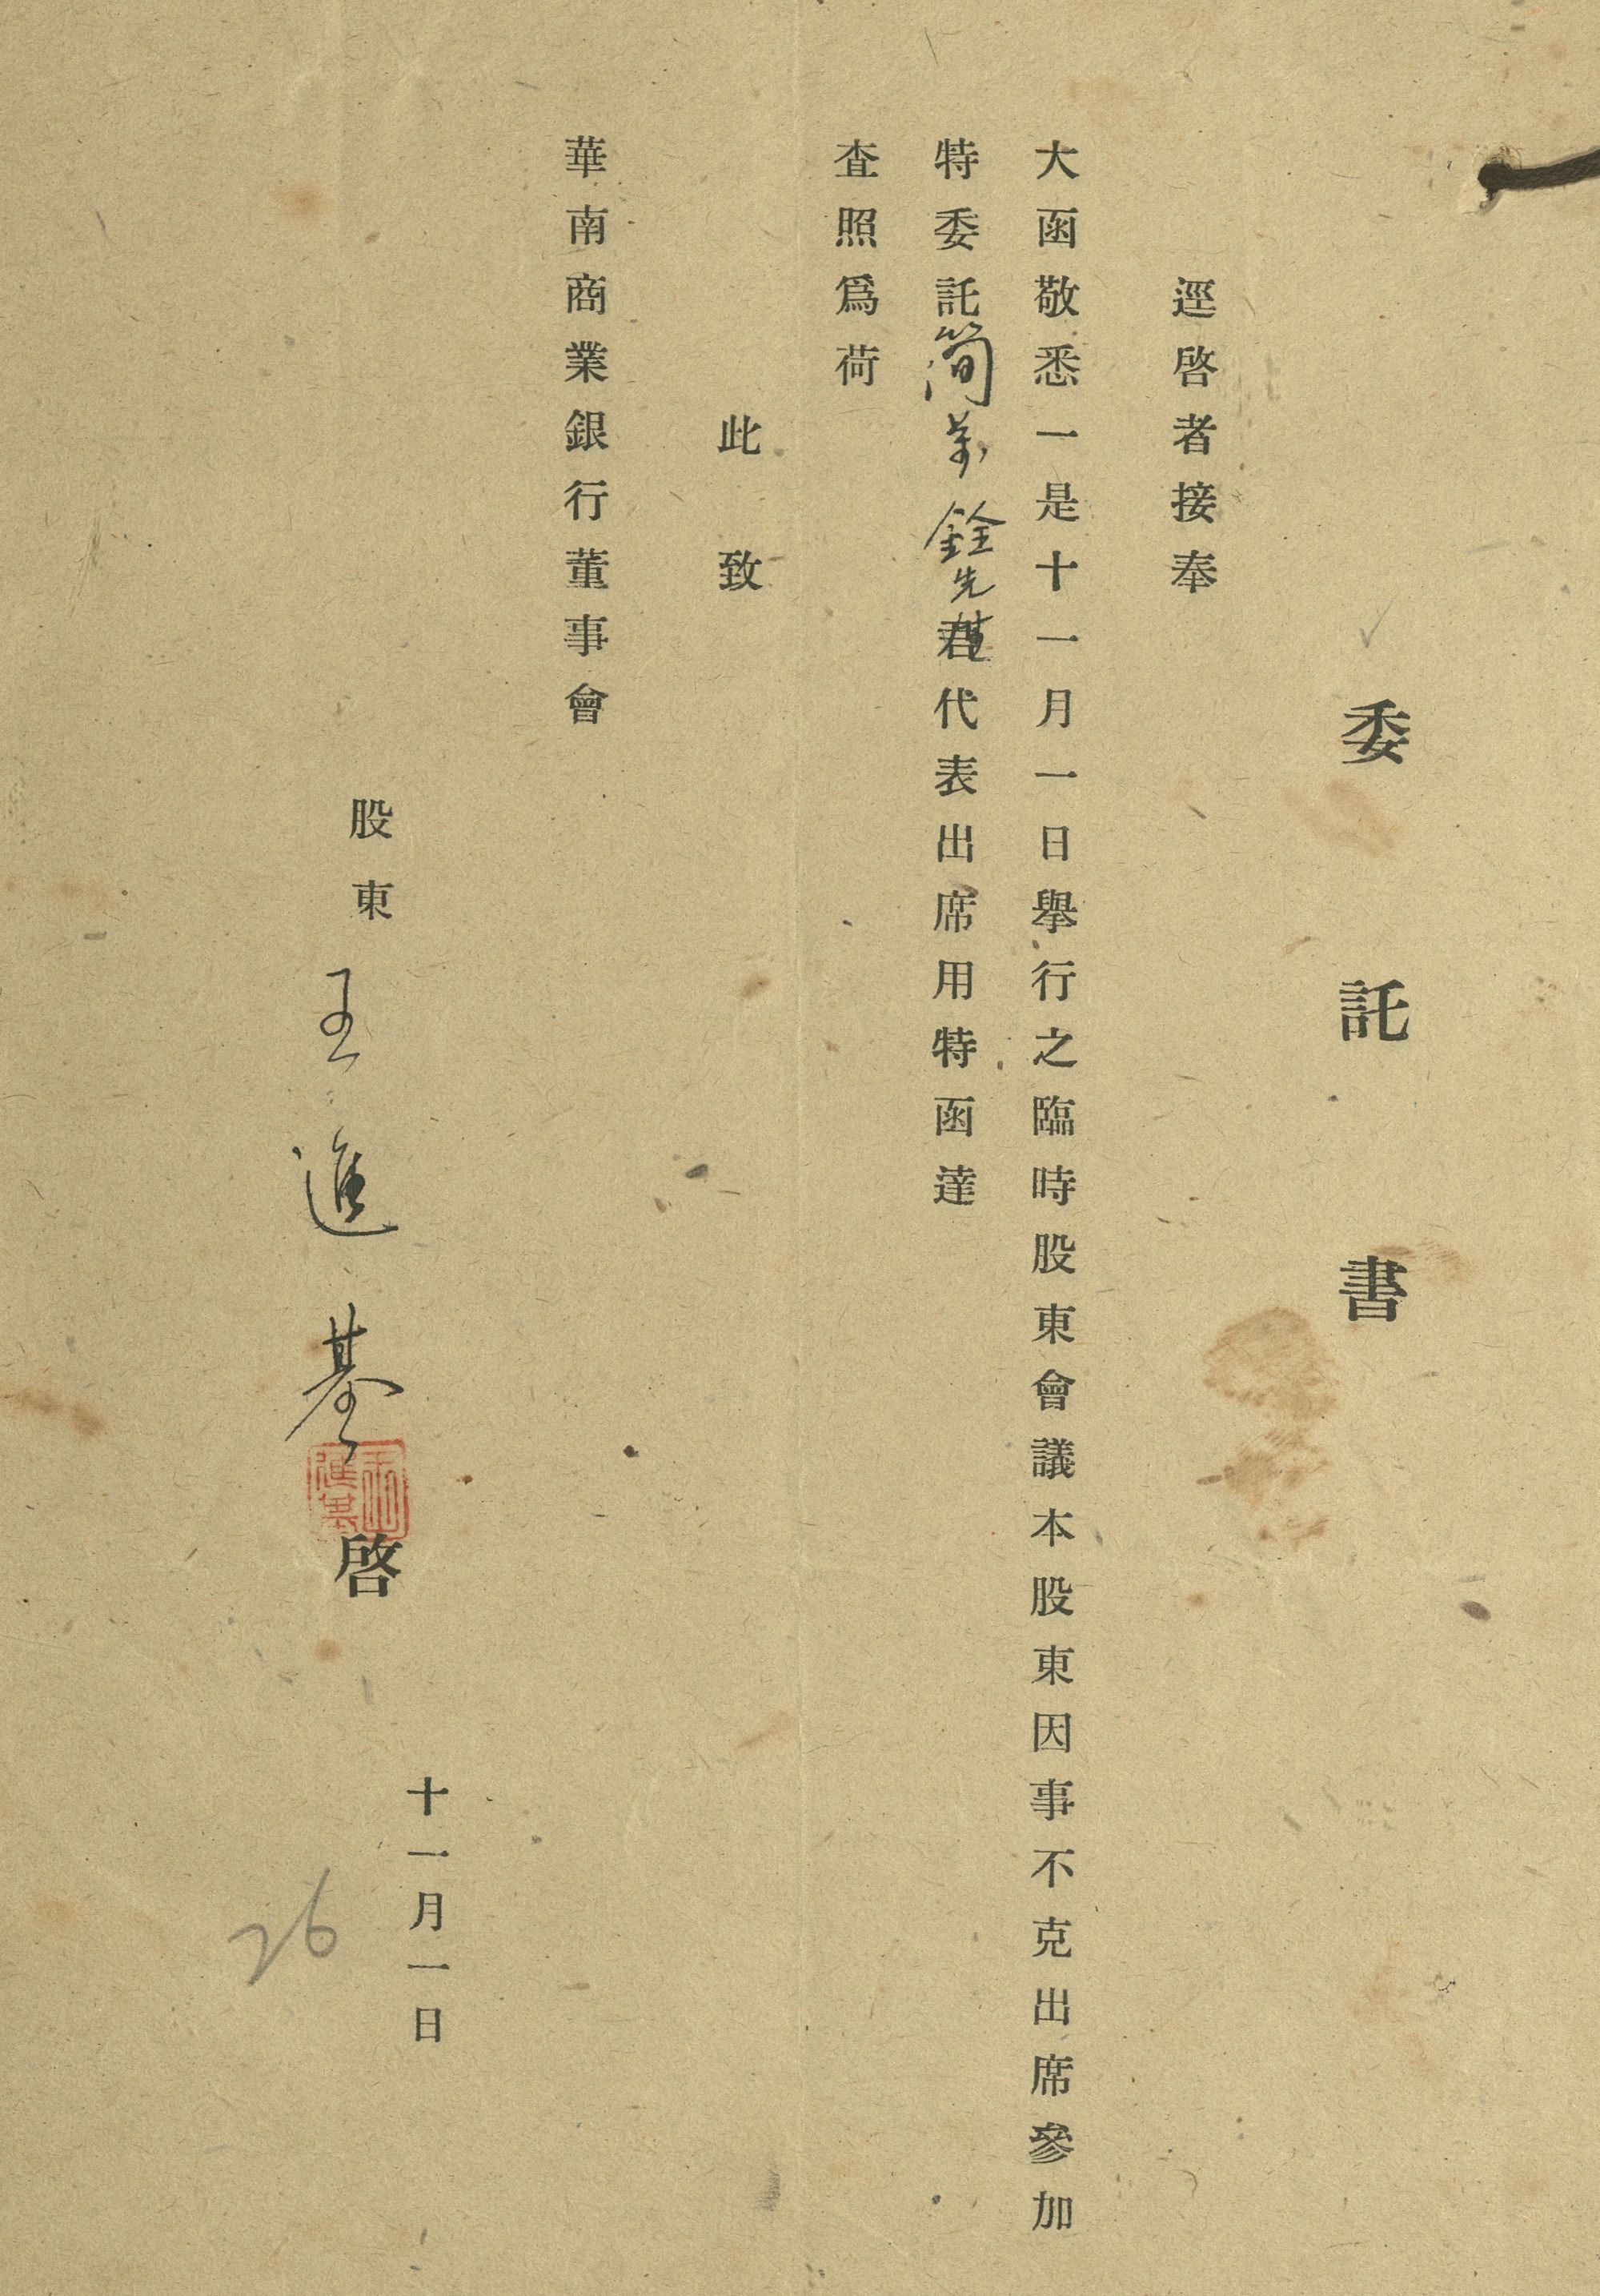 委託書
逕啓者接奉
大函敬悉一是十一月一日舉行之臨時股東會議本股東因事不克出席參加
特委託簡萬銓先君代表出席用特函達
查照爲荷
此致
華南商業銀行董事會
股東王進基啓
王進基
十一月一日
26